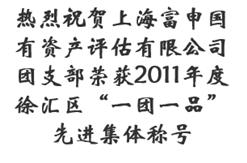 热烈祝贺上海富申国
有资产评估有限公司
团支部荣获2011年度
徐汇区“一团一品”
先进集体称号